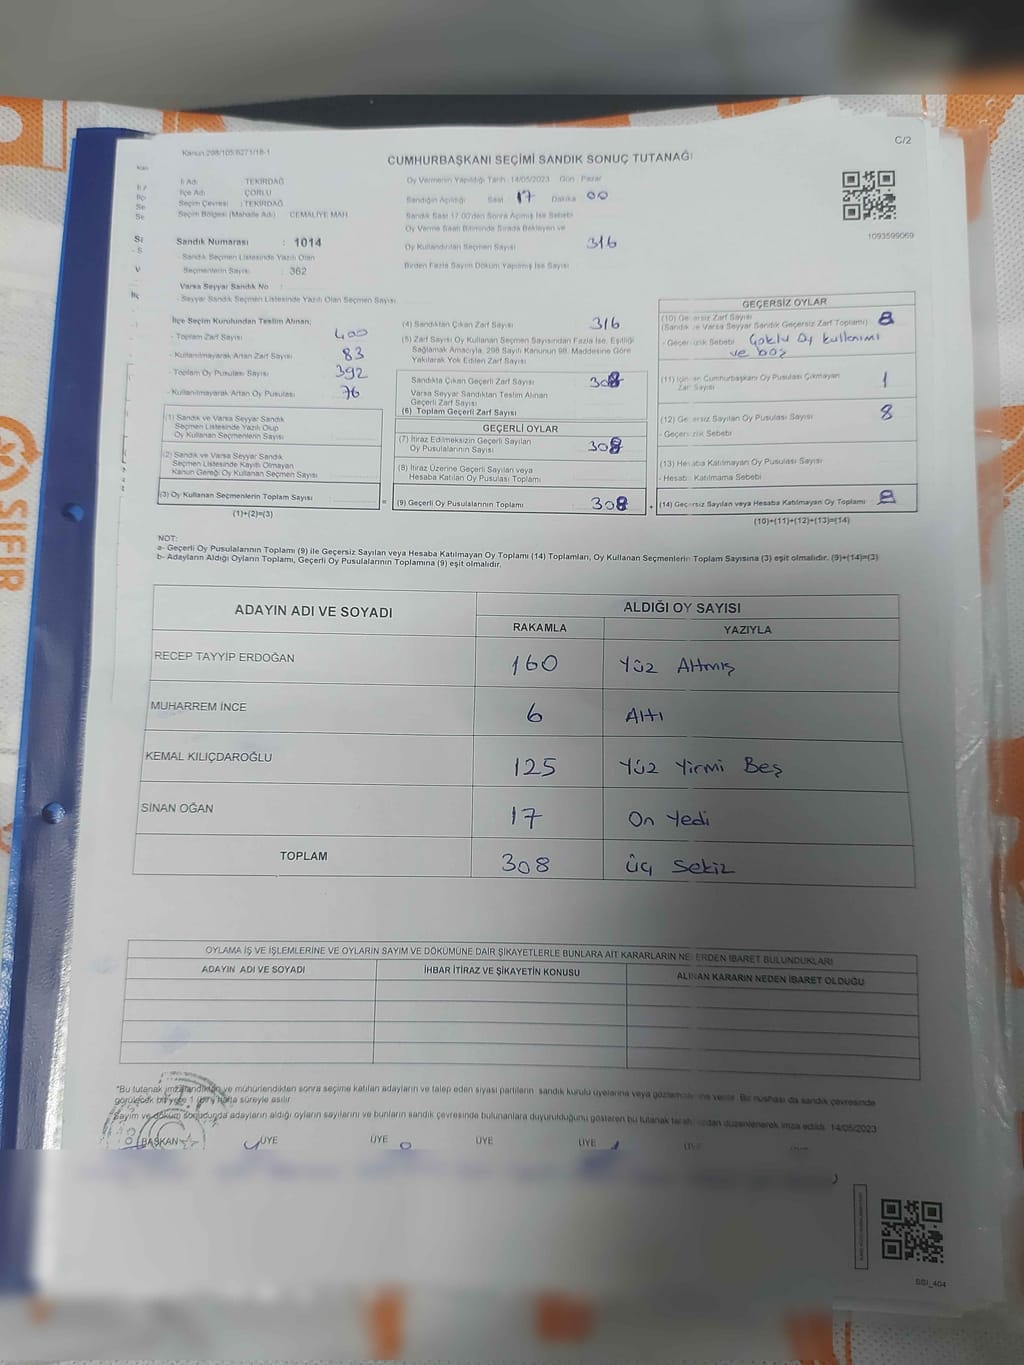 C/2
Kanun 298/105/6271/18-1
CUMHURBAŞKANI SEÇİMİ SANDIK SONUÇ TUTANAĞI
İl Adı TEKİRDAĞ
İlçe Adı ÇORLU
Seçim Çevresi : TEKİRDAĞ
Seçim Bölgesi (Mahalle Adı) CEMALİYE MAH
Sandık Numarası : 1014
- Sandık Seçmen Listesinde Yazılı Olan
Seçmenlerin Sayısı : 362
Varsa Seyyar Sandık No
- Seyyar Sandık Seçmen Listesinde Yazılı Olan Seçmen Sayısı
Oy Vermenin Yapıldığı Tarih :14/05/2023 Gün : Pazar
Sandığın Açıldığı Saat 17 Dakika 00
Sandık Saat 17.00'den Sonra Açılmış İse Sebebi
Oy Verme Saati Bitiminde Sırada Bekleyen ve
Oy Kullandırılan Seçmen Sayısı 316
Birden Fazla Sayım Döküm Yapılmış İse Sayısı
1093599069
İlçe Seçim Kurulundan Teslim Alınan;
- Toplam Zarf Sayısı 400
- Kullanılmayarak Artan Zarf Sayısı 83
- Toplam Oy Pusulası Sayısı 392
- Kullanılmayarak Artan Oy Pusulası 76
(1) Sandık ve Varsa Seyyar Sandık
Seçmen Listesinde Yazılı Olup
Oy Kullanan Seçmenlerin Sayısı
(2) Sandık ve Varsa Seyyar Sandık
Seçmen Listesinde Kayıtlı Olmayan
Kanun Gereği Oy Kullanan Seçmen Sayısı
(3) Oy Kullanan Seçmenlerin Toplam Sayısı
(1)+(2)=(3)
(4) Sandıktan Çıkan Zarf Sayısı 316
(5) Zarf Sayısı Oy Kullanan Seçmen Sayısından Fazla İse, Eşitliği
Sağlamak Amacıyla, 298 Sayılı Kanunun 98. Maddesine Göre
Yakılarak Yok Edilen Zarf Sayısı
Sandıkta Çıkan Geçerli Zarf Sayısı 308
Varsa Seyyar Sandıktan Teslim Alınan
Geçerli Zarf Sayısı
(6) Toplam Geçerli Zarf Sayısı
GEÇERLİ OYLAR
(7) İtiraz Edilmeksizin Geçerli Sayılan
Oy Pusulalarının Sayısı 308
(8) İtiraz Üzerine Geçerli Sayılan veya
Hesaba Katılan Oy Pusulası Toplamı
= (9) Geçerli Oy Pusulalarının Toplamı 308
GEÇERSİZ OYLAR
(10) Geçersiz Zarf Sayısı 8
(Sandık ve Varsa Seyyar Sandık Geçersiz Zarf Toplamı)
- Geçersizlik Sebebi Çoklu Oy kullanımı
ve boş
(11) İçinden Cumhurbaşkanı Oy Pusulası Çıkmayan
Zarf Sayısı 1
(12) Geçersiz Sayılan Oy Pusulası Sayısı 8
- Geçersizlik Sebebi
(13) Hesaba Katılmayan Oy Pusulası Sayısı
- Hesaba Katılmama Sebebi
+ (14) Geçersiz Sayılan veya Hesaba Katılmayan Oy Toplamı 8
(10)+(11)+(12)+(13)=(14)
NOT:
a- Geçerli Oy Pusulalarının Toplamı (9) ile Geçersiz Sayılan veya Hesaba Katılmayan Oy Toplamı (14) Toplamları, Oy Kullanan Seçmenlerin Toplam Sayısına (3) eşit olmalıdır. (9)+(14)=(3)
b- Adayların Aldığı Oyların Toplamı, Geçerli Oy Pusulalarının Toplamına (9) eşit olmalıdır.
ADAYIN ADI VE SOYADI ALDIĞI OY SAYISI
RAKAMLA YAZIYLA
RECEP TAYYİP ERDOĞAN 160 Yüz Altmış
MUHARREM İNCE 6 Altı
KEMAL KILIÇDAROĞLU 125 Yüz Yirmi Beş
SİNAN OĞAN 17 On Yedi
TOPLAM 308 üç Sekiz
OYLAMA İŞ VE İŞLEMLERİNE VE OYLARIN SAYIM VE DÖKÜMÜNE DAİR ŞİKAYETLERLE BUNLARA AİT KARARLARIN NELERDEN İBARET BULUNDUKLARI
ADAYIN ADI VE SOYADI İHBAR İTİRAZ VE ŞİKAYETİN KONUSU ALINAN KARARIN NEDEN İBARET OLDUĞU
*Bu tutanak imzalandıktan ve mühürlendikten sonra seçime katılan adayların ve talep eden siyasi partilerin sandık kurulu üyelerine veya gözlemcilerine verilir. Bir nüshası da sandık çevresinde
görülecek bir yere 1 (bir) hafta süreyle asılır.
Sayım ve döküm sonucunda adayların aldığı oyların sayılarını ve bunların sandık çevresinde bulunanlara duyurulduğunu gösteren bu tutanak tarafımızdan düzenlenerek imza edildi. 14/05/2023
BAŞKAN ÜYE ÜYE ÜYE ÜYE
SSI_404
SIFIR